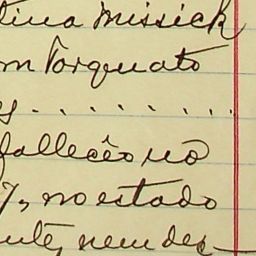 tina Missick
m Torquato
y. . . . . . . . .
falleceo no
7, no estado
ute, nem des-